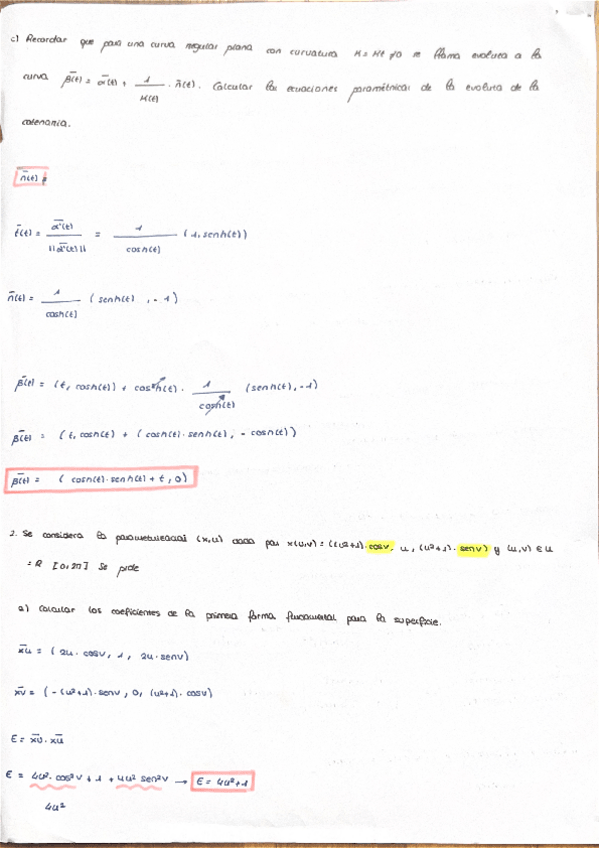 c) Recordar que para una curva regular plana con curvatura K = Kt ≠ 0 se llama evoluta a la
curva β̄(t) = ᾱ(t) + 1/K(t) · n̄(t). Calcular las ecuaciones paramétricas de la evoluta de la
catenaria.
n̄(t)
t̄(t) = ᾱ'(t)/||ᾱ'(t)|| = 1/cosh(t) (1, senh(t))
n̄(t) = 1/cosh(t) (senh(t), -1)
β̄(t) = (t, cosh(t)) + cosh²(t) · 1/cosh(t) (senh(t), -1)
β̄(t) = (t, cosh(t) + (cosh(t)·senh(t), -cosh(t))
β̄(t) = (cosh(t)·senh(t) + t, 0)
2. Se considera la (x,u) dada por x(u,v) = ((u²+1)·cosv, u, (u²+1)·senv) y (u,v) ∈ u
= R [0,2π] Se pide
a) Calcular los coeficientes de la primera forma fundamental para la superficie.
x̄u = (2u·cosv, 1, 2u·senv)
x̄v = (-(u²+1)·senv, 0, (u²+1)·cosv)
E = x̄u·x̄u
E = 4u²·cos²v + 1 + 4u² sen²v → E = 4u²+1
4u²